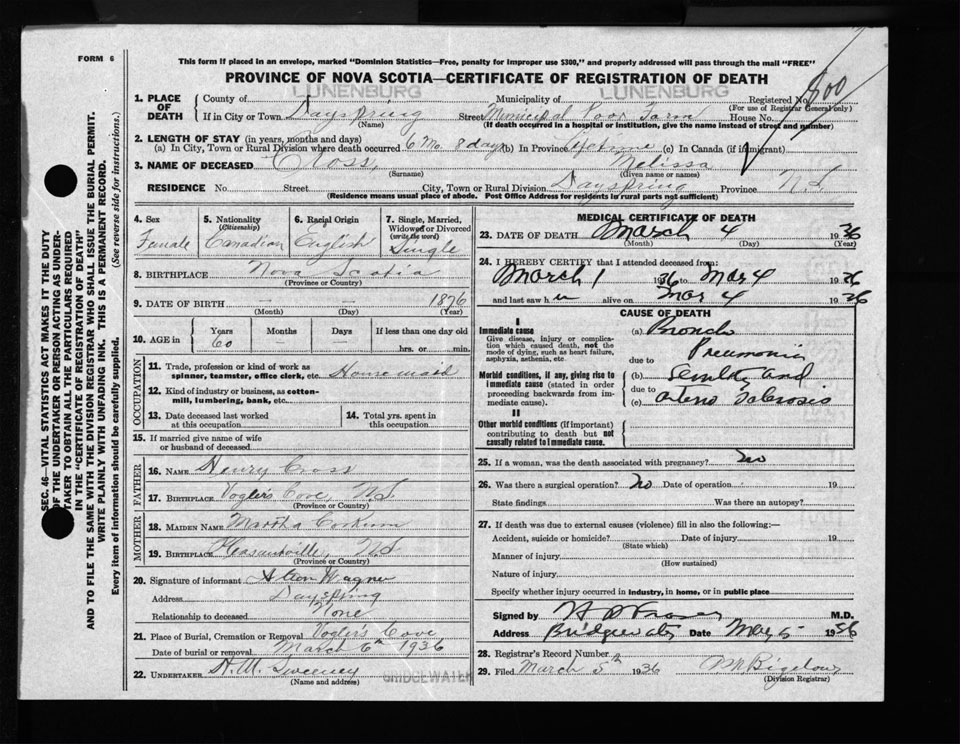 FORM 6
This form if placed in an envelope, marked "Dominion Statistics—Free, penalty for improper use $300," and properly addressed will pass through the mail "FREE"
PROVINCE OF NOVA SCOTIA—CERTIFICATE OF REGISTRATION OF DEATH
SEC. 46—VITAL STATISTICS ACT MAKES IT THE DUTY
OF THE UNDERTAKER OR PERSON ACTING AS UNDER-
TAKER TO OBTAIN ALL THE PARTICULARS REQUIRED
IN THE "CERTIFICATE OF REGISTRATION OF DEATH"
AND TO FILE THE SAME WITH THE DIVISION REGISTRAR WHO SHALL ISSUE THE BURIAL PERMIT.
WRITE PLAINLY WITH UNFADING INK. THIS IS A PERMANENT RECORD.
Every item of information should be carefully supplied. (See reverse side for instructions.)
1. PLACE OF DEATH County of LUNENBURG Municipality of LUNENBURG Registered No. 800
(For use of Registrar General only)
If in City or Town Dayspring Street Municipal Poor Farm House No.
(Name) (If death occurred in a hospital or institution, give the name instead of street and number)
2. LENGTH OF STAY (in years, months and days)
(a) In City, Town or Rural Division where death occurred 6 Mo. 8 days (b) In Province (c) In Canada (if immigrant)
3. NAME OF DECEASED Cross, Melissa
(Surname) (Given name or names)
RESIDENCE No. Street City, Town or Rural Division Dayspring Province N.S.
(Residence means usual place of abode. Post Office Address for residents in rural parts not sufficient)
4. Sex 5. Nationality (Citizenship) 6. Racial Origin 7. Single, Married, Widowed or Divorced (write the word)
Female Canadian English Single
8. BIRTHPLACE Nova Scotia
(Province or Country)
9. DATE OF BIRTH — — 1876
(Month) (Day) (Year)
10. AGE in Years Months Days If less than one day old
60 — — hrs. or min.
OCCUPATION
11. Trade, profession or kind of work as spinner, teamster, office clerk, etc. Housemaid
12. Kind of industry or business, as cotton-mill, lumbering, bank, etc.
13. Date deceased last worked at this occupation
14. Total yrs. spent in this occupation
15. If married give name of wife or husband of deceased
FATHER
16. NAME Henry Cross
17. BIRTHPLACE Vogler's Cove, N.S.
(Province or Country)
MOTHER
18. MAIDEN NAME Martha Corkum
19. BIRTHPLACE Pleasantville, N.S.
(Province or Country)
20. Signature of informant Wagner
Address Dayspring
Relationship to deceased None
21. Place of Burial, Cremation or Removal Vogler's Cove
Date of burial or removal March 6th 1936
22. UNDERTAKER H. M. Sweeney BRIDGEWATER
(Name and address)
MEDICAL CERTIFICATE OF DEATH
23. DATE OF DEATH March 4 1936
(Month) (Day) (Year)
24. I HEREBY CERTIFY that I attended deceased from:
March 1 1936 to Mar 4 1936
and last saw her alive on Mar 4 1936
CAUSE OF DEATH
I
Immediate cause
Give disease, injury or complication which caused death, not the mode of dying, such as heart failure, asphyxia, asthenia, etc.
(a) Broncho
due to Pneumonia
Morbid conditions, if any, giving rise to immediate cause (stated in order proceeding backwards from immediate cause).
(b) Senility and
due to
(c) Arterio Sclerosis
II
Other morbid conditions (if important) contributing to death but not causally related to immediate cause.
25. If a woman, was the death associated with pregnancy? No
26. Was there a surgical operation? No Date of operation 19
State findings Was there an autopsy?
27. If death was due to external causes (violence) fill in also the following:—
Accident, suicide or homicide? Date of injury 19
(State which)
Manner of injury
(How sustained)
Nature of injury
Specify whether injury occurred in industry, in home, or in public place
Signed by M.D.
Address Bridgewater Date Mar 5 1936
28. Registrar's Record Number
29. Filed March 5th 1936 Bigelow
(Division Registrar)